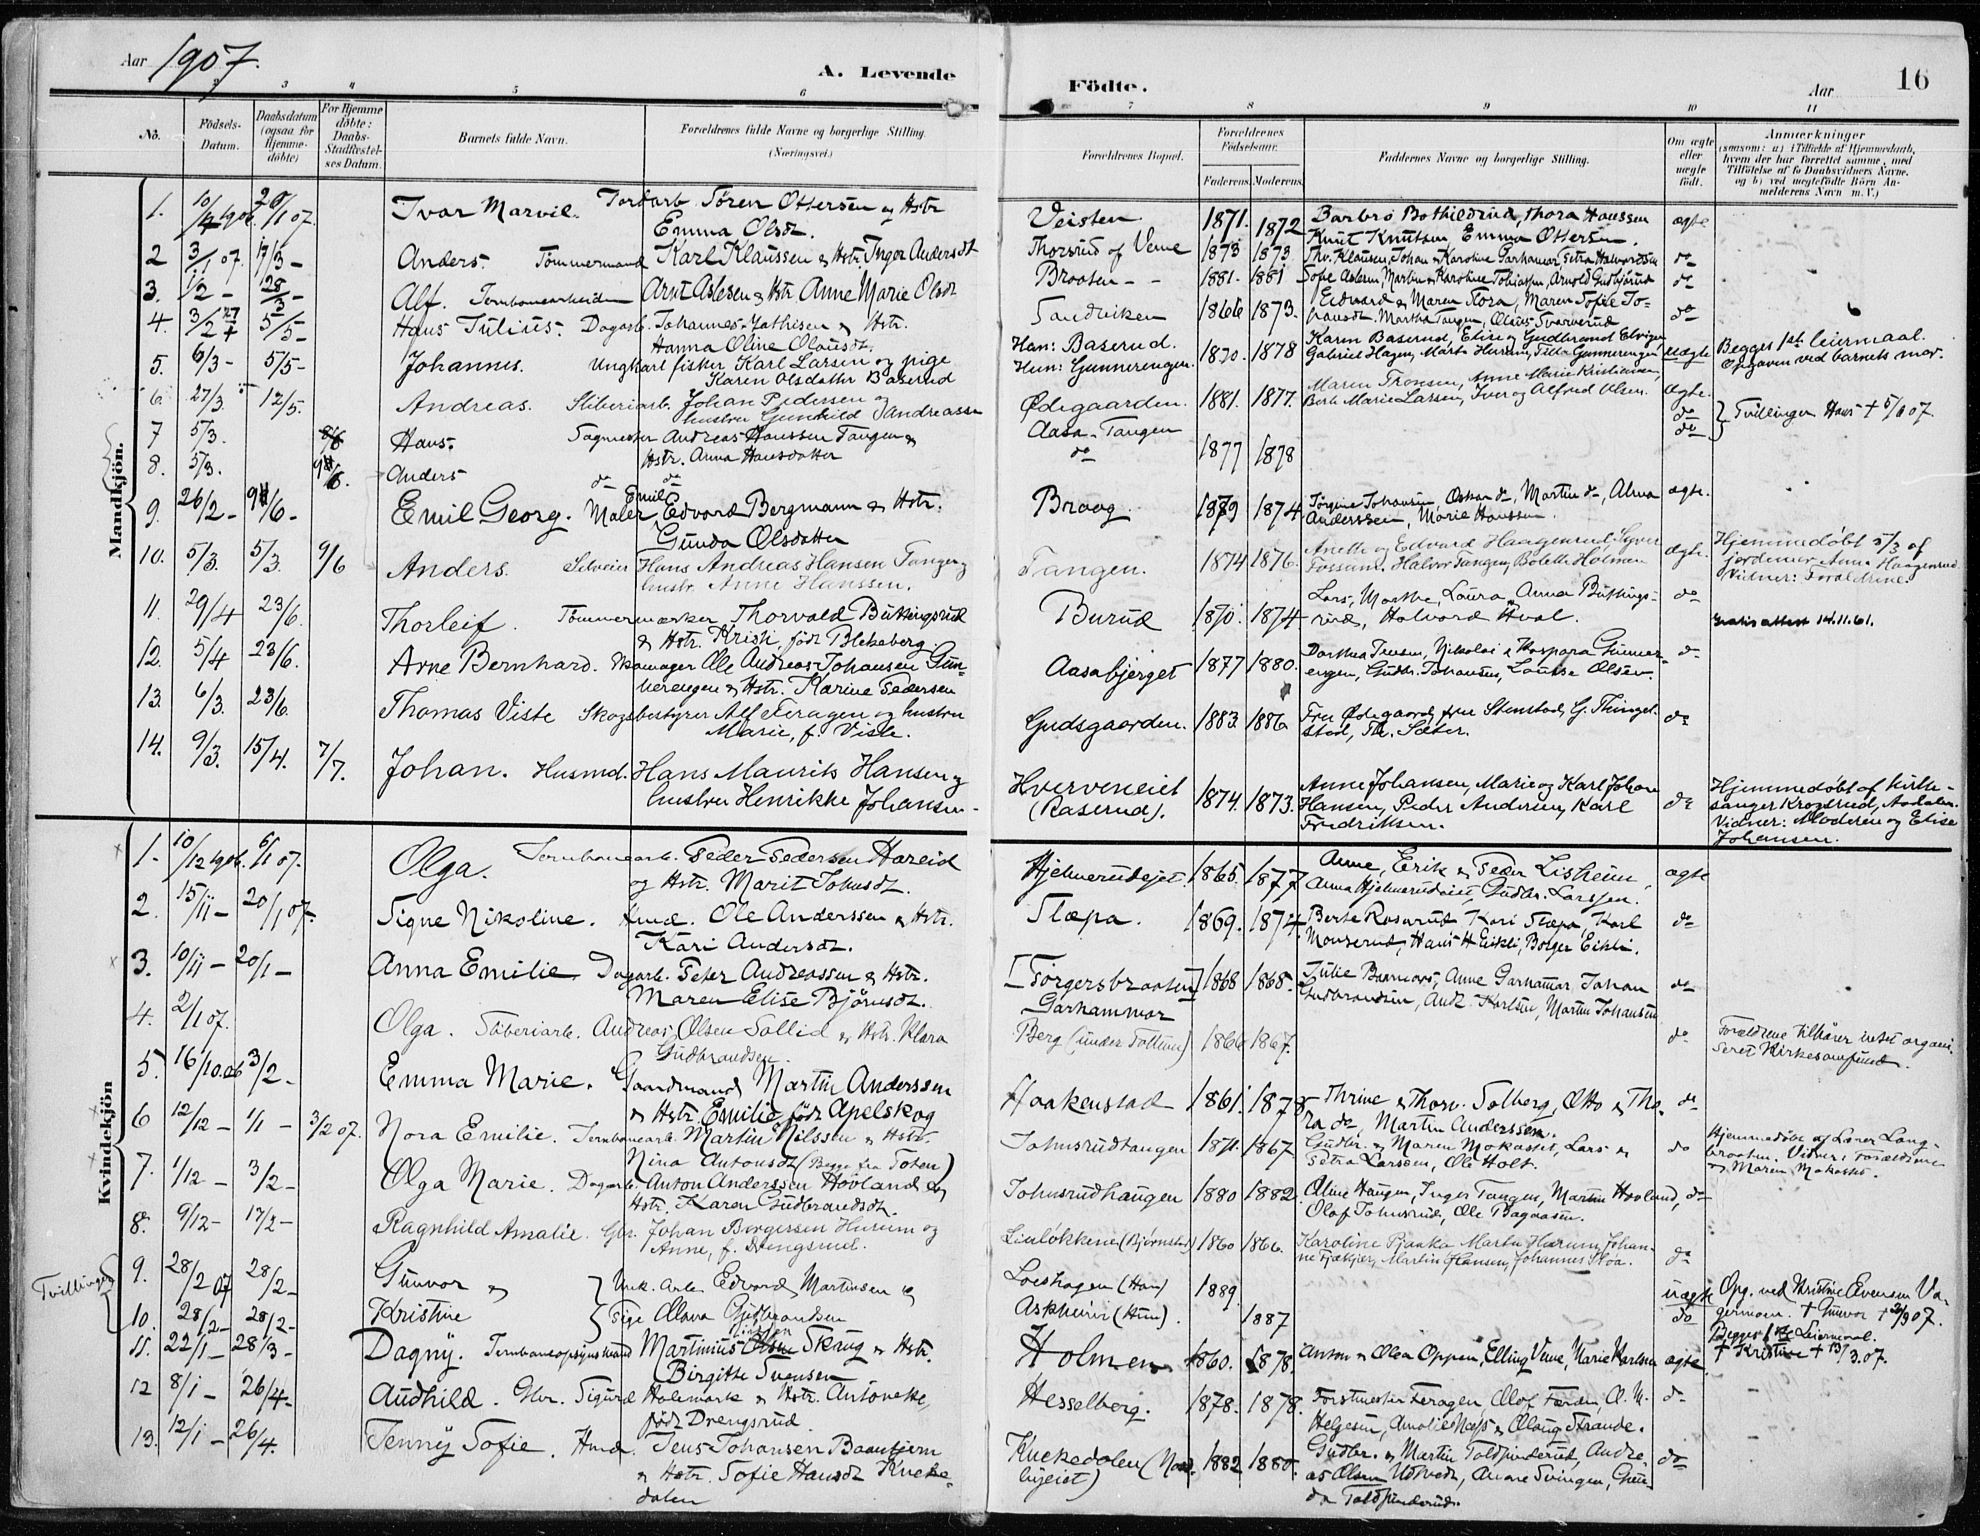 Aar 1907.
A. Levende
Födte.
Aar
16
2 3 4 5 6 7 8 9 10 11
No.
Födsels-
Datum.
Daabsdatum
(ogsaa for
Hjemme-
döbte)
For Hjemme
döbte:
Daabs-
Stadfæstel-
ses Datum.
Barnets fulde Navn.
Forældrenes fulde Navne og borgerlige Stilling.
(Næringsvei.)
Forældrenes Bopæl.
Forældrenes
Födselsaar.
Faderens Moderens
Faddernes Navne og borgerlige Stilling.
Om ægte
eller
uægte
födt.
Anmærkninger
(saasom: a) i Tilfælde af Hjemmedaab,
hvem der har forrettet samme, med
Tilföielse af to Daabsvidners Navne.
og b) ved uægtefödte Börn An-
melderens Navn m. V.)
Mandkjön.
1. 10/12 1906. 20/1 07. Ivar Marvil. Jordarb. Sören Ottersen & Hstr
Emma Olsdt.
Veisten 1871. 1872 Barbro Bothildrud, Thora Hanssen
Knut Knutsen, Emma Ottersen. ægte
2 3/1 07. 17/3 - Anders. Tömmermand Karl Klaussen & Hstr. Inger Andersdt
Thorsrud af Veme 1873 1873. do
3. 1/2 - 28/3 - Alf. Jernbanearbeider Arnt Aslesen & Hstr Anne Marie Olsdt
Braaten - - 1881. 1881 do
4. 3/2 5/5 - Hans Julius. Dagarb. Johannes Mathisen & Hstr.
Hanna Oline Olausdt.
Sandviken 1866 1873. Edvard & Maren Flora, Maren Sofie Jo-
hansdt. Martha Tangen, Olaus Svarverud do
5. 6/3 - 5/5 - Johannes. Ungkarl fisker Karl Larsen og pige
Karen Olsdatter Baserud
Han: Baserud.
Hun: Gunnerengen. 1870. 1878 Karen Baserud, Elise og Gudbrand Elvigen
Gabriel Hagen, Marte Hurum, Gunnerengen uægte Begges 1ste leiermaal.
Opgaven ved barnets mor.
6. 27/3. 12/5. Andreas. Sliberiarb. Johan Pedersen og
hustru Gunhild Andreassen
Ødegaarden. 1881. 1877. Maren Tronsen, Anne Marie Kristiansen,
Berte Marie Larsen, Iver og Alfred Olsen. ægte.
7 5/3. Hans. Sagmester Andreas Hanssen Tangen &
Hstr. Anna Hansdatter
Aasa-Tangen 1877 1878 do Tvillinger Hans † 5/6 07.
8. 5/3. Anders do do
do do
9. 26/2 - 9/6 - Emil Georg. Maler Emil Edvard Bergmann & Hstr.
Gunda Olsdatter
Braag. 1879 1874 Jørgine Johansen, Oskar do, Martin do, Alma
Anderssen, Marie Hanssen. ægte.
10. 5/3. 5/3. 9/6 Anders. Selveier Hans Andreas Hansen Tangen og
hustr. Anne Hanssen.
Tangen. 1874 1876. Anette og Edvard Haagenrud, Syver
Fossum, Halvor Tangen, Bolette Holmen ægte. Hjemmedøbt 5/3 af
jordemor Anna Haagenrud
Vidner: Forældrene.
11. 29/4 23/6. Thorleif. Tömmermærker Thorvald Buttingsrud
& Hstr. Kristi, född Blekeberg.
Burud 1870. 1874 Lars, Marthe, Laura, Anna Buttings-
rud, Halvord Hval. do Gratis attest 14.11.61.
12. 5/4 23/6. Arne Bernhard. Skomager Ole Andreas Johansen Gun-
nerengen & Hstr. Karine Pedersen
Aasabjerget 1877 1880. Dorthea Jensen, Nikolai & Kaspara Gunner-
engen, Gudbr. Johansen, Louise Olsen. do
13. 6/3. 23/6. Thomas Viste Skogsbestyrer Alf Feragen og hustru
Marie, f. Viste.
Gudsgaarden. 1883. 1886. Fru Ødegaard, fru Stenstad, G. Thingel-
stad, Th. Sæter. do
14. 9/3. 15/4. 7/7. Johan. Husmd. Hans Maurits Hansen og
hustru Henrikke Johansen.
Hverveneiet
(Raserud). 1874. 1873. Anne Johansen, Marie og Karl Johan
Hansen, Peder Andersen, Karl
Fredriksen. do Hjemmedøbt af kirke-
sanger Krogsrud, Aadalen.
Vidner: Moderen og Elise
Johansen.
Kvindekjön
1. 10/12 1906. 6/1 07. Olga. Jernbanearb. Peder Pedersen Hareid
og Hstr. Marit Johnsdt.
Hjelmerudejet. 1865. 1877 Anne, Erik & Peder Lisheim,
Anna Hjelmerudeiet, Gudbr. Larssen. ægte
2. 15/11 - 20/1 07. Signe Nikoline. Hmd. Ole Anderssen & Hstr.
Kari Andersdt.
Slæpa. 1869. 1874. Berte Roserud Kari Slæpa, Karl
Monserud, Hans H Eikli, Borger Eikli. do
3. 10/11 - 20/1 - Anna Emilie. Dagarb. Peter Andreassen & Hstr.
Maren Elise Björnsdt.
[Torgersbraaten]
Garhammar 1868 1868. Julie, Anne Garhamar, Johan
Gudbrandsen, Andr. Karlsen, Martin Johansen do
4. 2/1 07. Olga. Sliberiarb. Andreas Olsen Sollid & Hstr. Klara
Gudbrandsen.
Berg (under Foltum) 1866 1867. do Forældrene tilhører intet organi-
seret Kirkesamfund.
5. 16/10.06 3/2 - Emma Marie. Gaardmand Martin Anderssen
& Hstr. Emilie född Apelskog
Haakenstad 1861. 1878 Thrine & Thorv. Solberg, Otto & Tho-
ra do, Martin Anderssen. do
6 12/12 - 1/1 - 3/2 07. Nora Emilie. Jernbanearb. Martin Nilssen & Hstr.
Nina Antonsdt (Begge fra Toten)
Johnsrudtangen 1871. 1867 Gudbr. & Maren Mokastet, Lars &
Petra Larssen, Ole Holt. do Hjemmedøbt af Lærer Lang-
braaten. Vidner: Forældrene
& Maren Mokastet.
7. 1/12 - 3/2 - Olga Marie. Dagarb. Anton Anderssen Hovland &
Hstr. Karen Gudbrandsdt.
Johnsrudhaugen 1880 1882. Oline Haugen, Inger Tangen, Martin Hovland,
Olof Johnsrud, Ole Bagaasen. do
8. 9/12 - 17/2 - Ragnhild Amalie. Gbr. Johan Borgersen Hurum og
Anne, f. Drengsrud.
Linløkkene (Bjørnstad) 1860 1866. Karoline Pjaaka Marte Hurum, Johan-
ne Fjeldstad, Martin Hansen, Johannes Moa. do
Tvillinger
9. 28/2 07 28/2 - Gunvor & Unk. Arb. Edvard Martinsen &
Loeshagen (Han) 1889. uægte Opg. ved Kristine Evensen Va-
germoen. † Gunvor † 2/3 07.
10. 28/2 - 28/2 - Kristine Pige Olava Gudbrandsen
Askheim (Hun). 1887 do Begges 1ste Leiermaal.
† Kristine † 13/3.07.
11. 22/1 - 28/3 - Dagny. Jernbaneopsynsmand Martinius Skrug & Hstr.
Birgitte Svensen
Holmen 1860. 1878. Anton & Olea Oppen, Elling Veme, Marie Karlsen ægte.
12 8/1 - 26/4 - Audhild. Gbr. Sigurd Holemark & Hstr. Antonette,
född Drengsrud
Hesselberg. 1878. 1878. Forstmester Feragen, Olof Færden, O. M.
Helgesen, Amalie Næss & Olaug Strande. do
13. 12/1 - 26/4. Jenny Sofie. Hmd. Jens Johansen Baasbjerm
& Hstr. Sofie Hansdt Kneke-
dalen
Knekedalen (
byeiet) 1882 1880. Gudbr. & Martin Toldfinderud, Andre-
as Olsen Utsveds, Anne Svingen, Gun-
da Toldfinderud. do